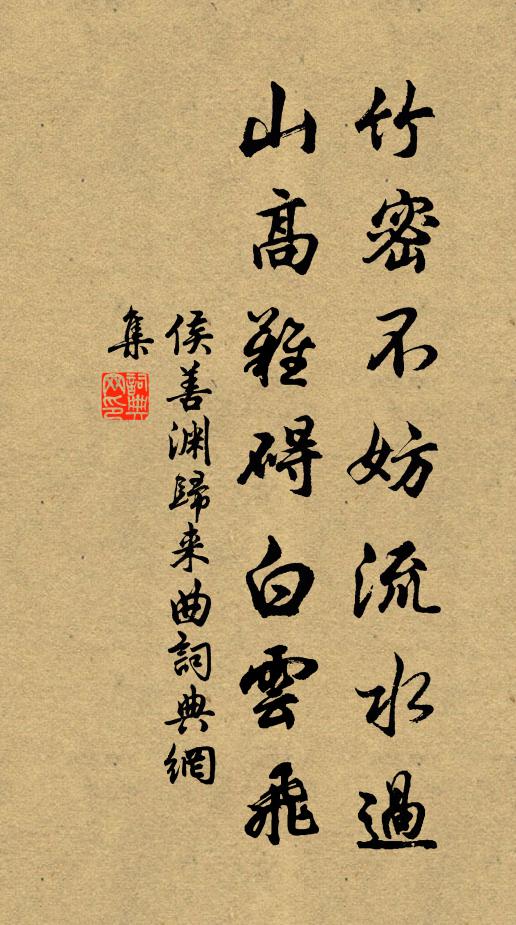 竹密不妨流水過
山高難碍白雲飛
侯善渊歸来曲詞典網
集
詞典网印